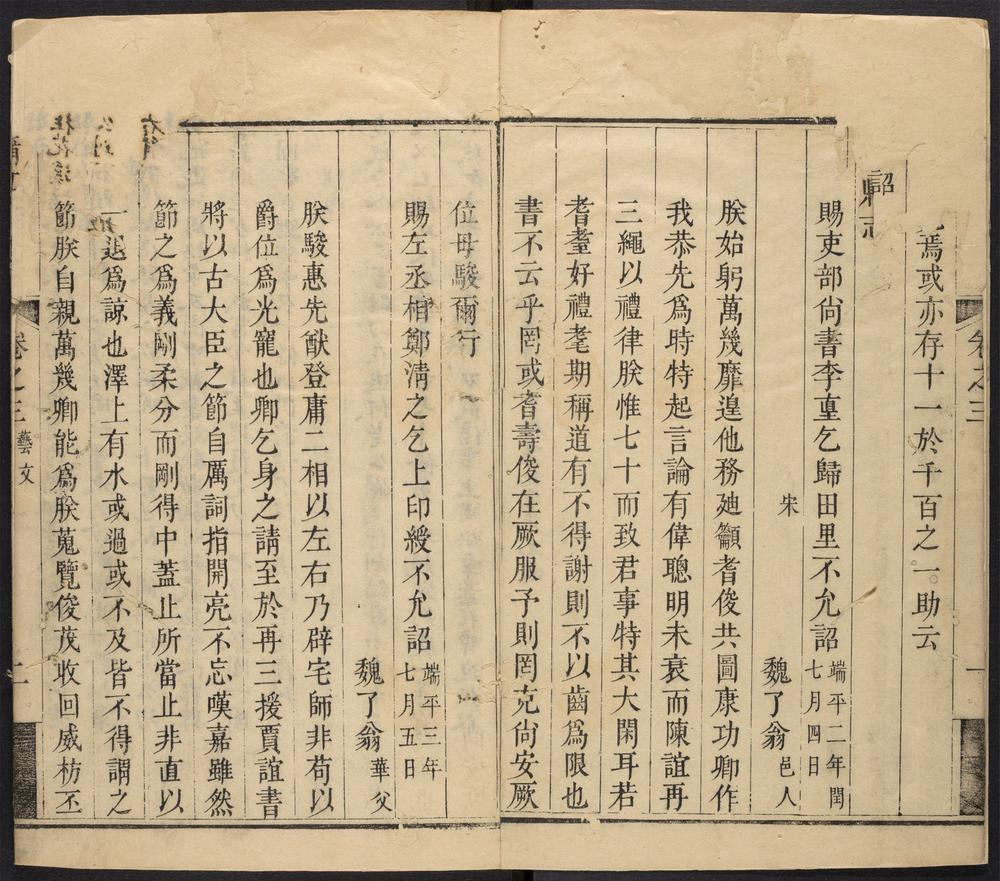 焉或亦存十一於千百之一助云
詔
賜吏部尚書李𡌴乞歸田里不允詔 端平二年閏七月四日
宋 魏了翁 邑人
朕始躬萬幾靡遑他務廸籲耆俊共圖康功卿作
我恭先爲時特起言論有偉聰明未衰而陳誼再
三繩以禮律朕惟七十而致君事特其大閑耳若
耆耋好禮耄期稱道有不得謝則不以齒爲限也
書不云乎罔或耆壽俊在厥服予則罔克尚安厥
位毋駿爾行
賜左丞相鄭淸之乞上印綬不允詔 端平三年七月五日
魏了翁 華父
朕駿惠先猷登庸二相以左右乃辟宅師非苟以
爵位爲光寵也卿乞身之請至於再三援賈誼書
將以古大臣之節自厲詞指開亮不忘嘆嘉雖然
節之爲義剛柔分而剛得中蓋止所當止非直以
一退爲諒也澤上有水或過或不及皆不得謂之
節朕自親萬幾卿能爲朕蒐覽俊茂收回威枋丕
卷之三 藝文
二